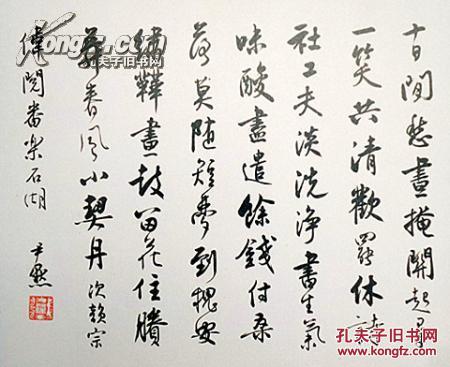 十日閒愁晝掩關起尋
一笑共清歡罷休詩
社工夫淡洗淨書生氣
味酸盡遣餘錢付桑
落莫随短夢到槐安
繡鞾畫鼓留花住賸
舞春風小契丹次韻宗
偉閱番樂石湖 尹默
孔夫子旧书网
kongfz.com